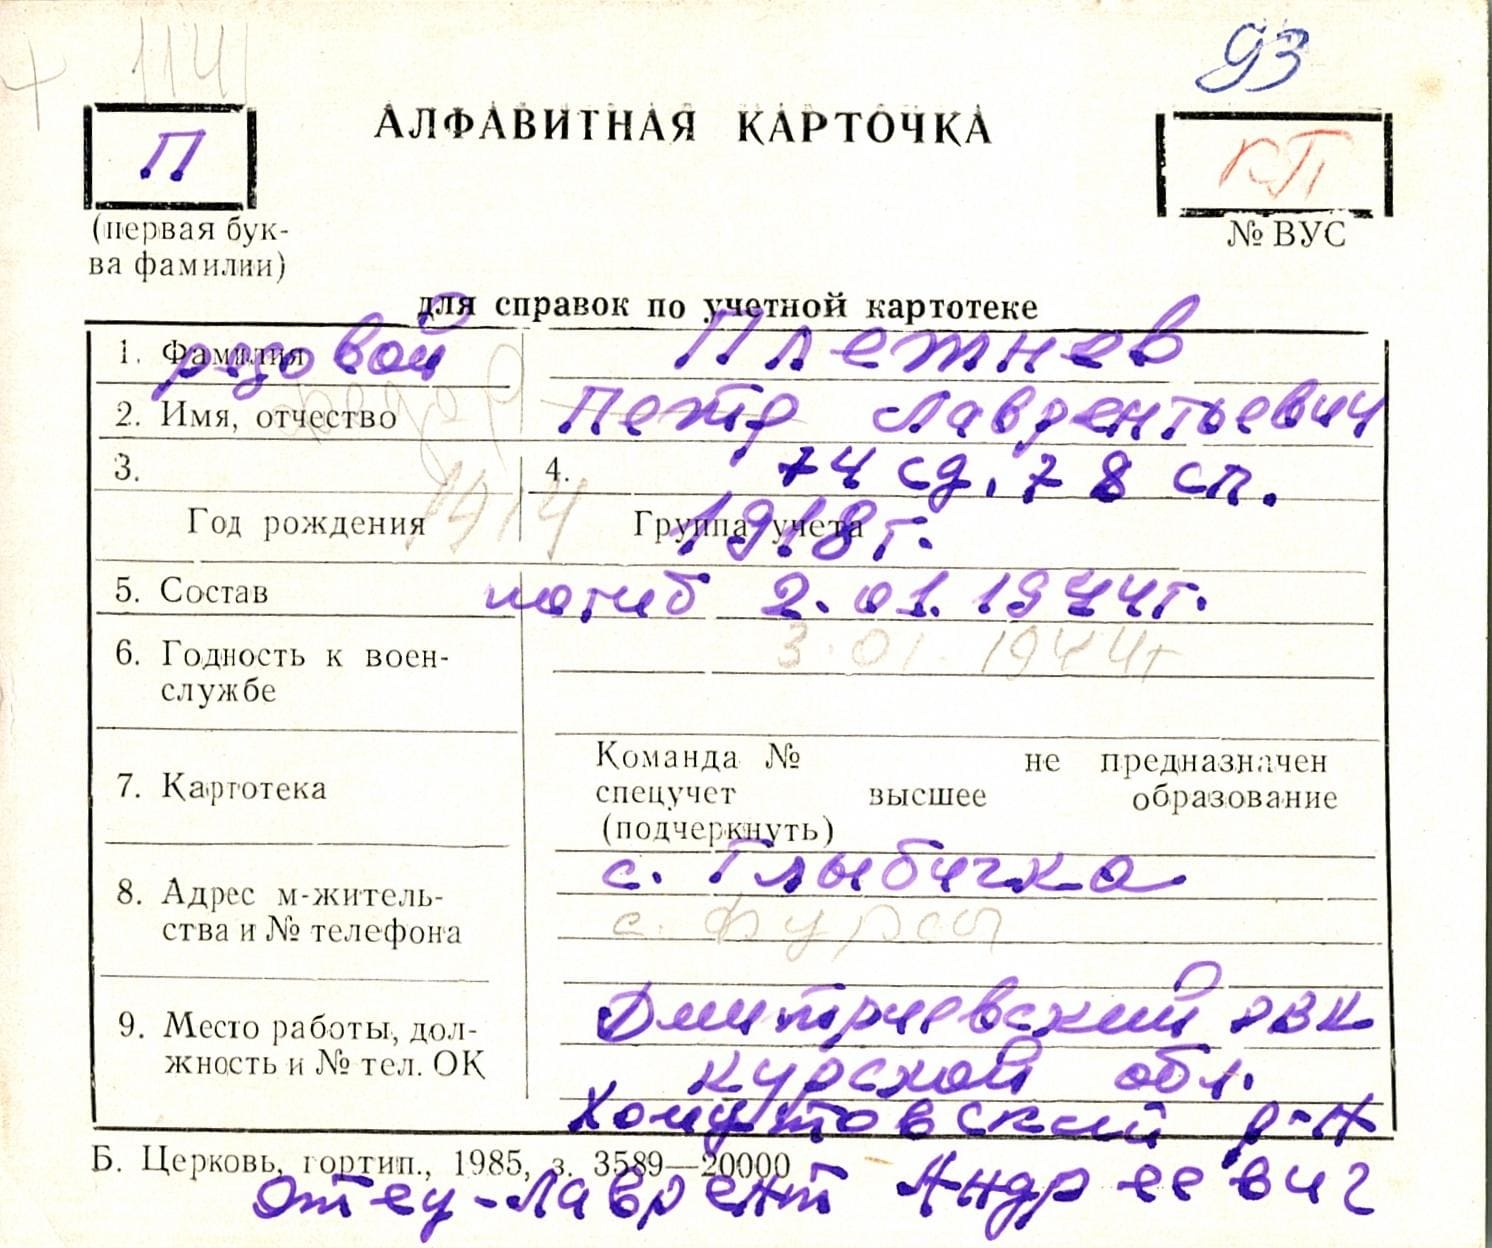 + 1141
93
П
АЛФАВИТНАЯ КАРТОЧКА
КП
(первая бук-
ва фамилии)
№ ВУС
для справок по учетной картотеке
1. Фамилия
рядовой
Плетнев
2. Имя, отчество
Петр Лаврентьевич
3.
4.
74 сд, 78 сп.
Год рождения
1914
Группа учета
1918г.
5. Состав
погиб 2.01.1944г.
3.01.1944г
6. Годность к воен-
службе
7. Картотека
Команда № не предназначен
спецучет высшее образование
(подчеркнуть)
8. Адрес м-житель-
ства и № телефона
с. Глыбичка
с. Фурсы
9. Место работы, дол-
жность и № тел. ОК
Дмитриевский РВК
Курской обл.
Хомутовский р-н
Б. Церковь, гортип., 1985, з. 3589—20000
отец-Лаврент Андреевич